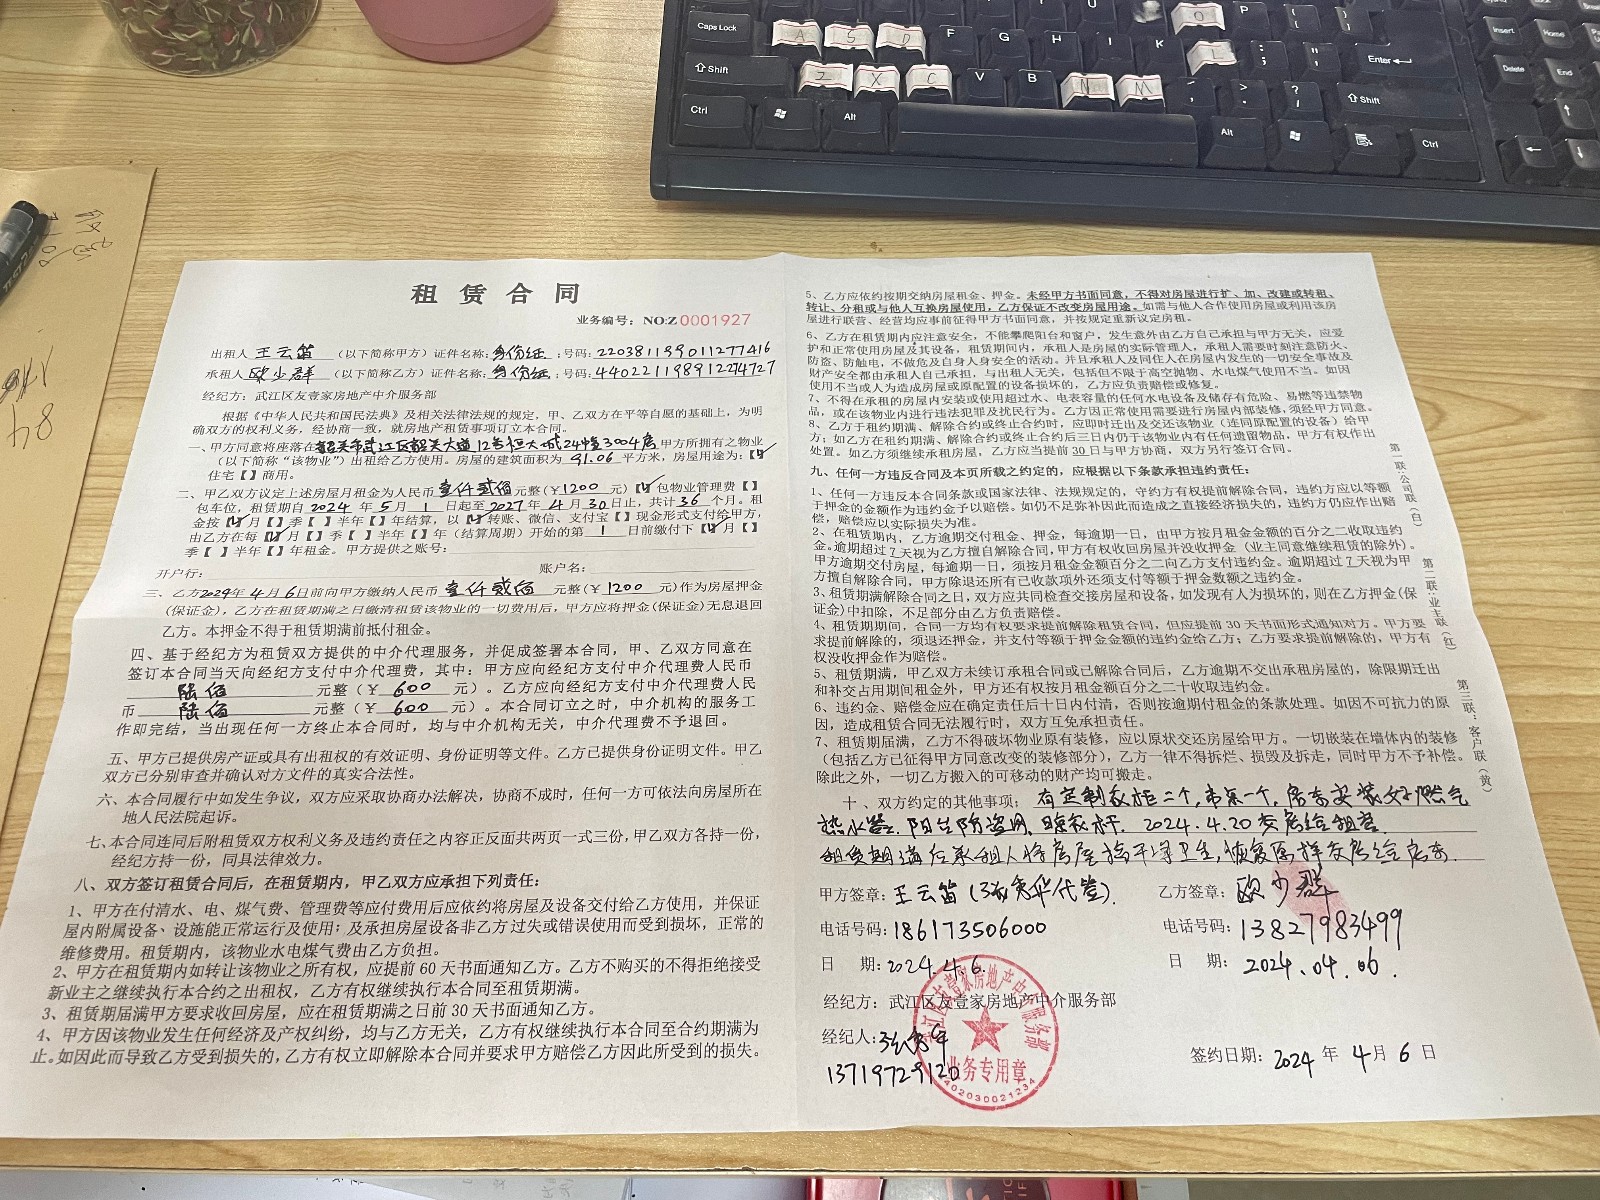 租赁合同
业务编号：NO:Z0001927
出租人 王云笛 （以下简称甲方）证件名称：身份证；号码：220381199011277416
承租人 欧少群 （以下简称乙方）证件名称：身份证；号码：440221198912274727
经纪方：武江区友壹家房地产中介服务部
根据《中华人民共和国民法典》及相关法律法规的规定，甲、乙双方在平等自愿的基础上，为明
确双方的权利义务，经协商一致，就房地产租赁事项订立本合同。
一、甲方同意将座落在韶关市武江区韶关大道12号恒大城24幢3004房甲方所拥有之物业
（以下简称“该物业”）出租给乙方使用。房屋的建筑面积为 91.06 平方米，房屋用途为：【✓】
住宅【 】商用。
二、甲乙双方议定上述房屋月租金为人民币 壹仟贰佰元整（￥1200 元）【✓】包物业管理费【 】
包车位，租赁期自2024 年 5 月 1 日起至2027年 4 月 30 日止，共计36 个月。租
金按【✓】月【 】季【 】半年【 】年结算，以【✓】转账、微信、支付宝【 】现金形式支付给甲方，
由乙方在每【✓】月【 】季【 】半年【 】年（结算周期）开始的第 1 日前缴付下【✓】月【 】
季【 】半年【 】年租金。甲方提供之账号：
开户行： 账户名：
三、乙方2024年 4 月 6日前向甲方缴纳人民币 壹仟贰佰 元整（￥ 1200 元）作为房屋押金
（保证金），乙方在租赁期满之日缴清租赁该物业的一切费用后，甲方应将押金（保证金）无息退回
乙方。本押金不得于租赁期满前抵付租金。
四、基于经纪方为租赁双方提供的中介代理服务，并促成签署本合同，甲、乙双方同意在
签订本合同当天向经纪方支付中介代理费，其中：甲方应向经纪方支付中介代理费人民币
陆佰 元整（￥ 600 元）。乙方应向经纪方支付中介代理费人民
币 陆佰 元整（￥ 600 元）。本合同订立之时，中介机构的服务工
作即完结，当出现任何一方终止本合同时，均与中介机构无关，中介代理费不予退回。
五、甲方已提供房产证或具有出租权的有效证明、身份证明等文件。乙方已提供身份证明文件。甲乙
双方已分别审查并确认对方文件的真实合法性。
六、本合同履行中如发生争议，双方应采取协商办法解决，协商不成时，任何一方可依法向房屋所在
地人民法院起诉。
七、本合同连同后附租赁双方权利义务及违约责任之内容正反面共两页一式三份，甲乙双方各持一份，
经纪方持一份，同具法律效力。
八、双方签订租赁合同后，在租赁期内，甲乙双方应承担下列责任：
1、甲方在付清水、电、煤气费、管理费等应付费用后应依约将房屋及设备交付给乙方使用，并保证
屋内附属设备、设施能正常运行及使用；及承担房屋设备非乙方过失或错误使用而受到损坏，正常的
维修费用。租赁期内，该物业水电煤气费由乙方负担。
2、甲方在租赁期内如转让该物业之所有权，应提前 60 天书面通知乙方。乙方不购买的不得拒绝接受
新业主之继续执行本合约之出租权，乙方有权继续执行本合同至租赁期满。
3、租赁期届满甲方要求收回房屋，应在租赁期满之日前 30 天书面通知乙方。
4、甲方因该物业发生任何经济及产权纠纷，均与乙方无关，乙方有权继续执行本合同至合约期满为
止。如因此而导致乙方受到损失的，乙方有权立即解除本合同并要求甲方赔偿乙方因此所受到的损失。
5、乙方应依约按期交纳房屋租金、押金。未经甲方书面同意，不得对房屋进行扩、加、改建或转租、
转让、分租或与他人互换房屋使用，乙方保证不改变房屋用途。如需与他人合作使用房屋或利用该房
屋进行联营、经营均应事前征得甲方书面同意，并按规定重新议定房租。
6、乙方在租赁期内应注意安全，不能攀爬阳台和窗户，发生意外由乙方自己承担与甲方无关，应爱
护和正常使用房屋及其设备，租赁期间内，承租人是房屋的实际管理人，承租人需要时刻注意防火、
防盗、防触电，不做危及自身人身安全的活动。并且承租人及同住人在房屋内发生的一切安全事故及
财产安全都由承租人自己承担，与出租人无关，包括但不限于高空抛物、水电煤气使用不当。如因
使用不当或人为造成房屋或原配置的设备损坏的，乙方应负责赔偿或修复。
7、不得在承租的房屋内安装或使用超过水、电表容量的任何水电设备及储存有危险、易燃等违禁物
品，或在该物业内进行违法犯罪及扰民行为。乙方因正常使用需要进行房屋内部装修，须经甲方同意。
8、乙方于租约期满、解除合约或终止合约时，应即时迁出及交还该物业（连同原配置的设备）给甲
方；如乙方在租约期满、解除合约或终止合约后三日内仍于该物业内有任何遗留物品，甲方有权作出
处置。如乙方须继续承租房屋，乙方应当提前 30 日与甲方协商，双方另行签订合同。
九、任何一方违反合同及本页所载之约定的，应根据以下条款承担违约责任：
1、任何一方违反本合同条款或国家法律、法规规定的，守约方有权提前解除合同，违约方应以等额
于押金的金额作为违约金予以赔偿。如仍不足弥补因此而造成之直接经济损失的，违约方仍应作出赔
偿，赔偿应以实际损失为准。
2、在租赁期内，乙方逾期交付租金、押金，每逾期一日，由甲方按月租金金额的百分之二收取违约
金。逾期超过 7 天视为乙方擅自解除合同，甲方有权收回房屋并没收押金（业主同意继续租赁的除外）。
甲方逾期交付房屋，每逾期一日，须按月租金金额百分之二向乙方支付违约金。逾期超过 7 天视为甲
方擅自解除合同，甲方除退还所有已收款项外还须支付等额于押金数额之违约金。
3、租赁期满解除合同之日，双方应共同检查交接房屋和设备，如发现有人为损坏的，则在乙方押金（保
证金）中扣除，不足部分由乙方负责赔偿。
4、租赁期期间，合同一方均有权要求提前解除租赁合同，但应提前 30 天书面形式通知对方。甲方要
求提前解除的，须退还押金，并支付等额于押金金额的违约金给乙方；乙方要求提前解除的，甲方有
权没收押金作为赔偿。
5、租赁期满，甲乙双方未续订承租合同或已解除合同后，乙方逾期不交出承租房屋的，除限期迁出
和补交占用期间租金外，甲方还有权按月租金额百分之二十收取违约金。
6、违约金、赔偿金应在确定责任后十日内付清，否则按逾期付租金的条款处理。如因不可抗力的原
因，造成租赁合同无法履行时，双方互免承担责任。
7、租赁期届满，乙方不得破坏物业原有装修，应以原状交还房屋给甲方。一切嵌装在墙体内的装修
（包括乙方已征得甲方同意改变的装修部分），乙方一律不得拆烂、损毁及拆走，同时甲方不予补偿。
除此之外，一切乙方搬入的可移动的财产均可搬走。
十、双方约定的其他事项：有定制衣柜三个，书桌一个，房东安装好燃气
热水器、阳台防盗网、晾衣杆。2024.4.20交房给租客。
租赁期满后承租人将房屋搞干净卫生，恢复原样交房给房东。
甲方签章：王云笛（张秀华代签）.
乙方签章：欧少群
电话号码：186173506000
电话号码：13827983499
日 期：2024.4.6.
日 期：2024.04.06.
经纪方：武江区友壹家房地产中介服务部
经纪人：张秀华
13719729120
签约日期：2024 年 4月 6 日
武江区友壹家房地产中介服务部
业务专用章
4402030021234
第一联：公司联（白）
第二联：业主联（红）
第三联：客户联（黄）
Caps Lock
A S D F G H J K L
Shift
Z X C V B N M
Ctrl
Alt
Alt
Ctrl
O P
Enter
Shift
Insert
Home
Delete
End